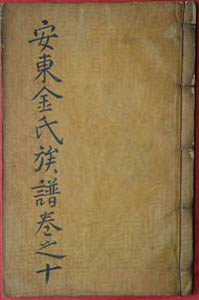 安東金氏族譜卷之十